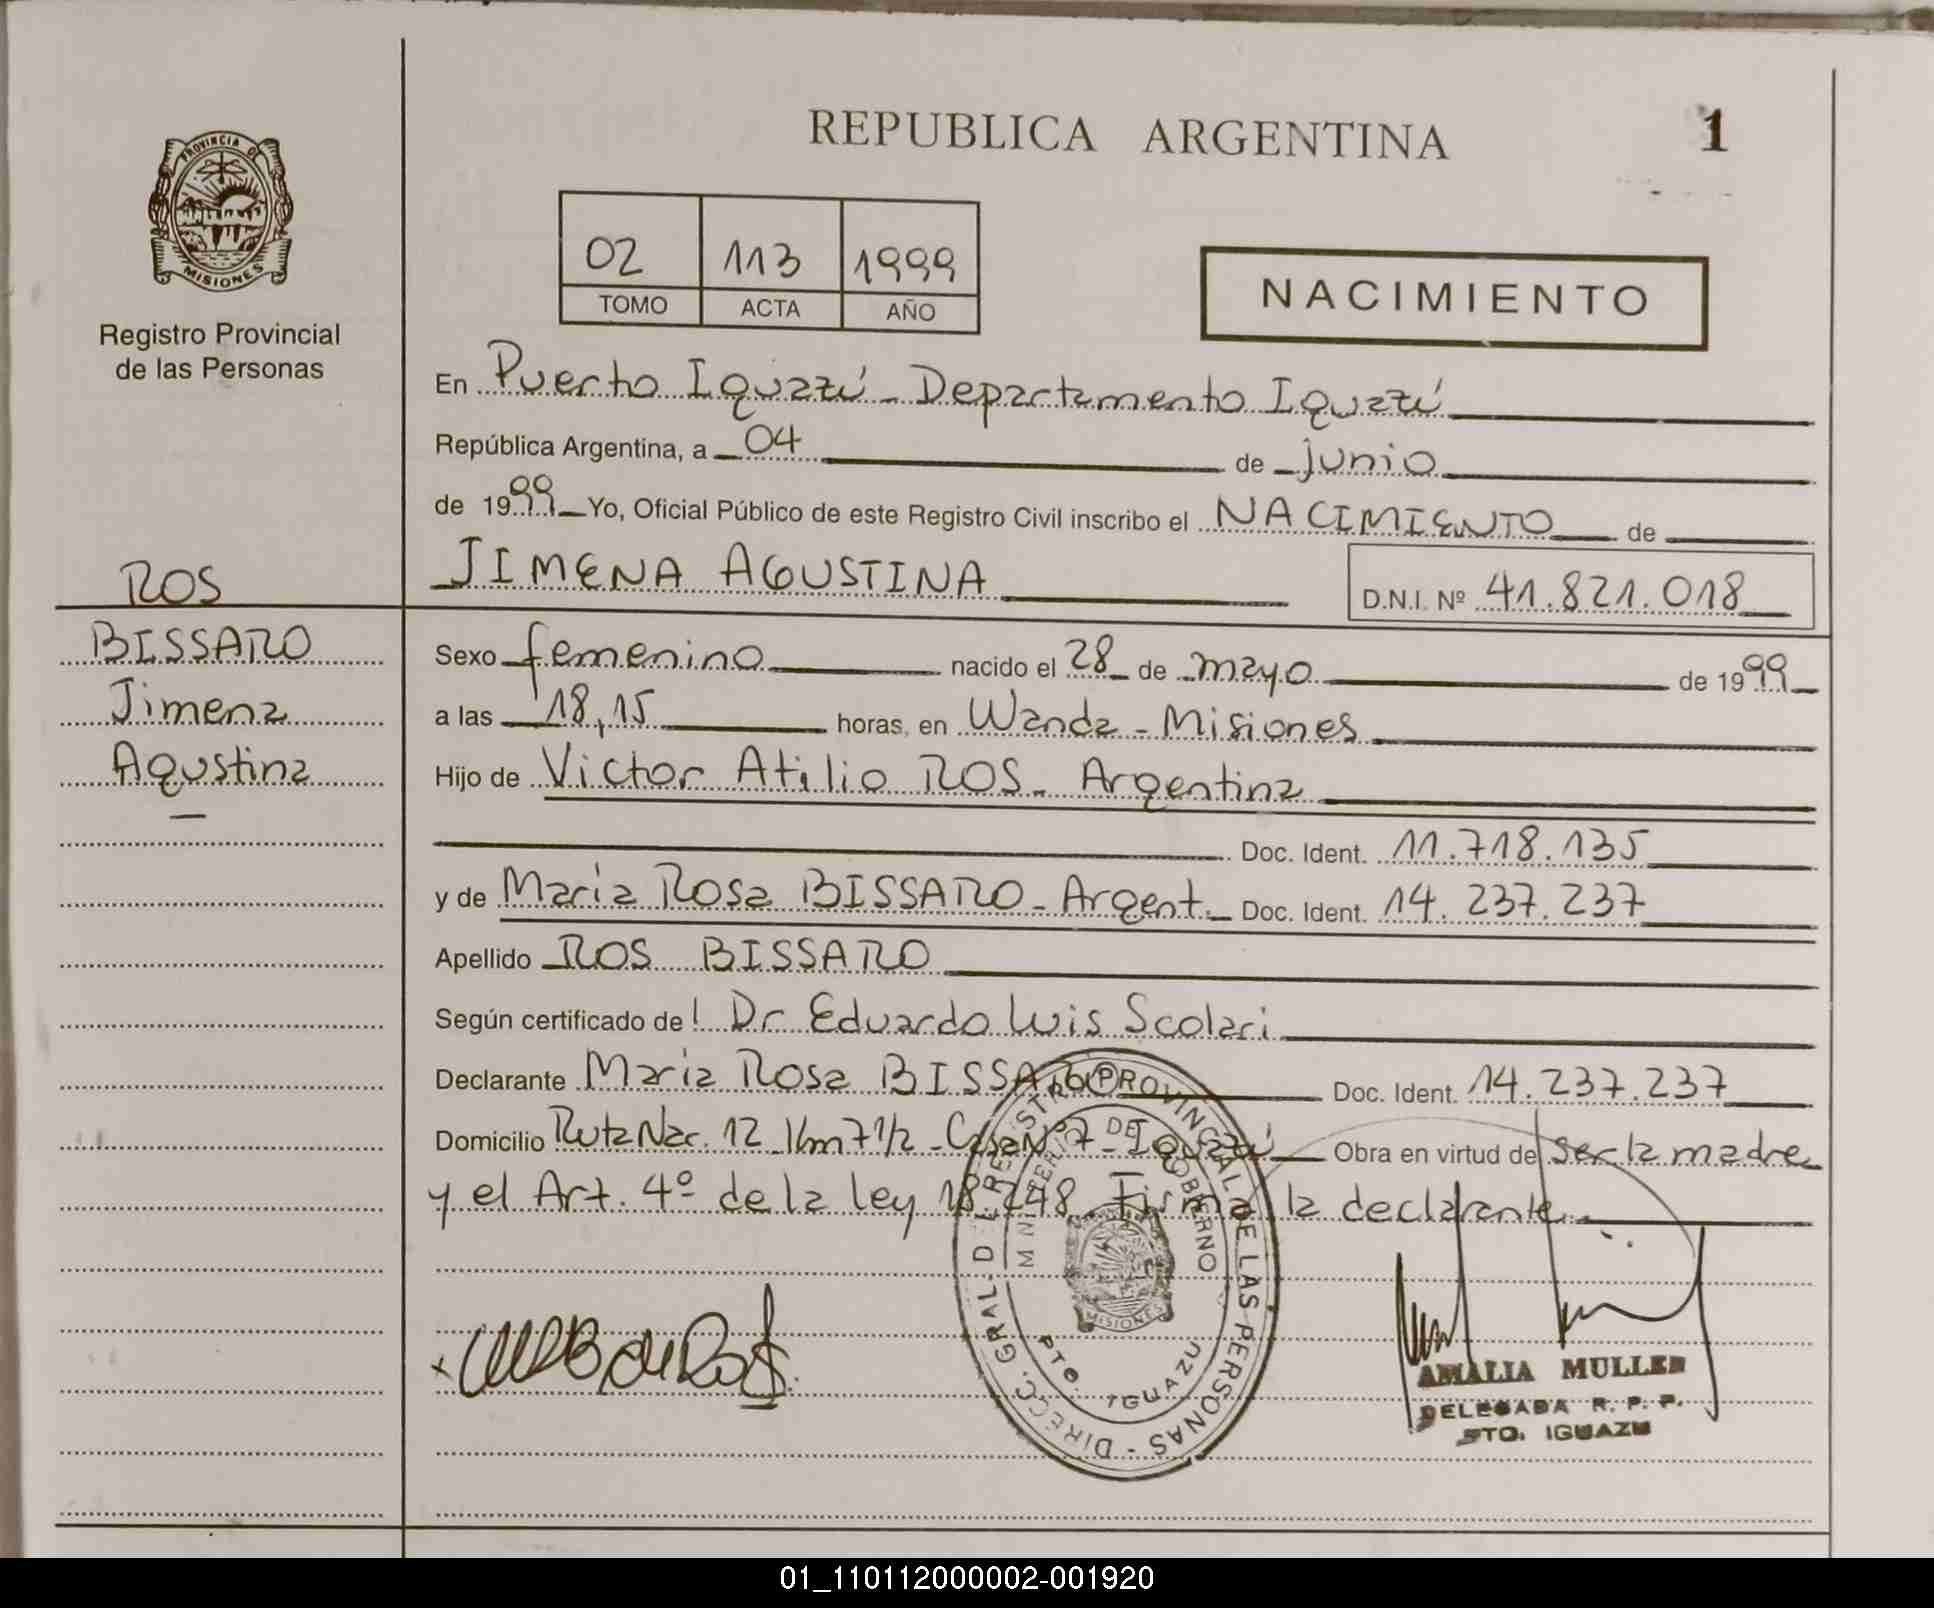 REPUBLICA ARGENTINA
1
PROVINCIA DE
MISIONES
Registro Provincial
de las Personas
02 113 1999
TOMO ACTA AÑO
NACIMIENTO
En Puerto Iguazú - Departamento Iguazú
República Argentina, a 04 de junio
de 1999 Yo, Oficial Público de este Registro Civil inscribo el NACIMIENTO de
JIMENA AGUSTINA
D.N.I. Nº 41.821.018
ROS
BISSARO
Jimena
Agustina
Sexo femenino nacido el 28 de mayo de 1999
a las 18,15 horas, en Wanda - Misiones
Hijo de Victor Atilio ROS - Argentina
Doc. Ident. 11.718.135
y de Maria Rosa BISSARO - Argent. Doc. Ident. 14.237.237
Apellido ROS BISSARO
Según certificado de ! Dr Eduardo Luis Scolari
Declarante Maria Rosa BISSARO Doc. Ident. 14.237.237
Domicilio Ruta Nac. 12 Km 7 1/2 - Casa Nº 7 - Iguazú Obra en virtud de ser la madre
y el Art. 4º de la ley 18.248. Firma la declarante
DIRECC. GRAL DE REGISTRO PROVINCIAL DE LAS PERSONAS -
MINISTERIO DE GOBIERNO
MISIONES
PTO. IGUAZU
AMALIA MULLER
DELEGADA R. P. P.
PTO. IGUAZU
01_110112000002-001920